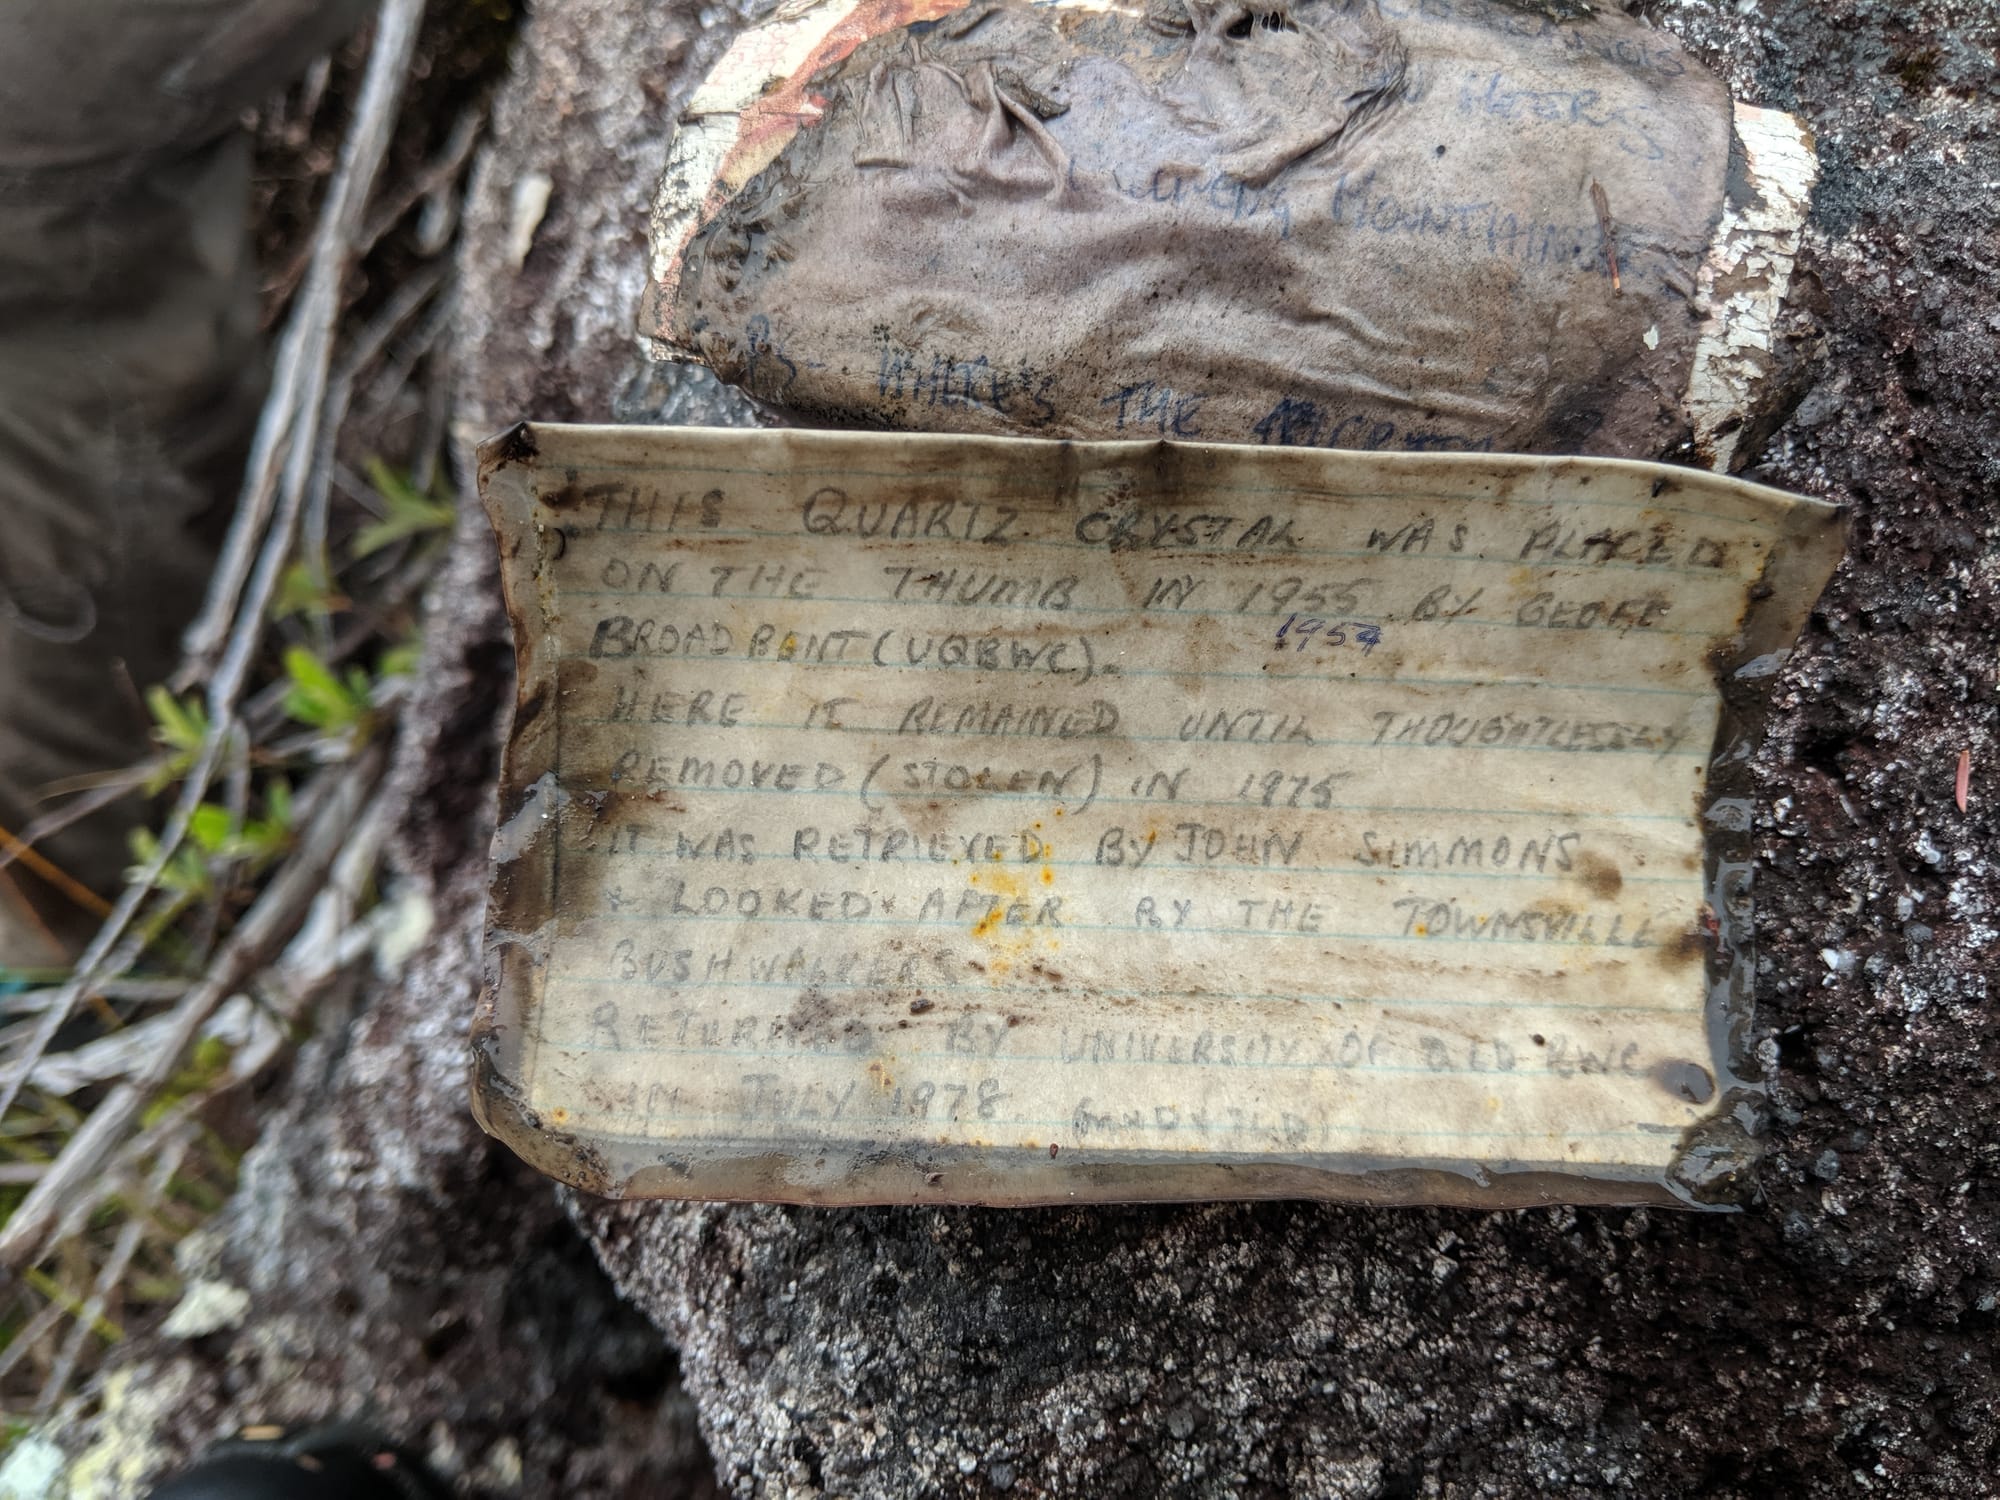 MOUNTAIN
PS - WHERE'S THE
THIS QUARTZ CRYSTAL WAS PLACED
ON THE THUMB IN 1955 BY GEOFF
1954
BROADBENT (UQBWC).
HERE IT REMAINED UNTIL THOUGHTLESSLY
REMOVED (STOLEN) IN 1975
IT WAS RETRIEVED BY JOHN SIMMONS
+ LOOKED AFTER BY THE TOWNSVILLE
BUSHWALKERS
RETURNED BY UNIVERSITY OF QLD BWC
IN JULY 1978